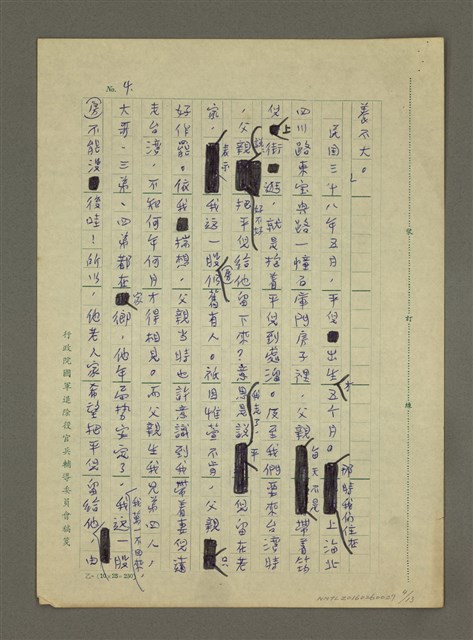 No. 4.
養不大。」
民國三十八年五月，平兒出生才五个月。那時我们住在上海北
四川路東宝興路一幢石庫門房子裡，父親每天不是揹着筠
兒上街逛，就是抱着平兒到處溜。及至我們要來台灣時
，父親說：把平兒給他留下來好不好？意思是說我走了，平兒留在老
家，表示我這一股（房）仍舊有人。祇因惟萱不肯，父親只
好作罷。依我揣想，父親當時也許意識到我帶着妻兒遠
走台灣，不知何年何月才得相見。而父親生我兄弟四人，
大哥、三弟、四弟都在家鄉，他年局勢安定了，我萬一不回來，我這一股
（房）不能沒後哇！所以，他老人家希望把平兒留給他。由
行政院國軍退除役官兵輔導委員會稿箋
裝訂線
4/13